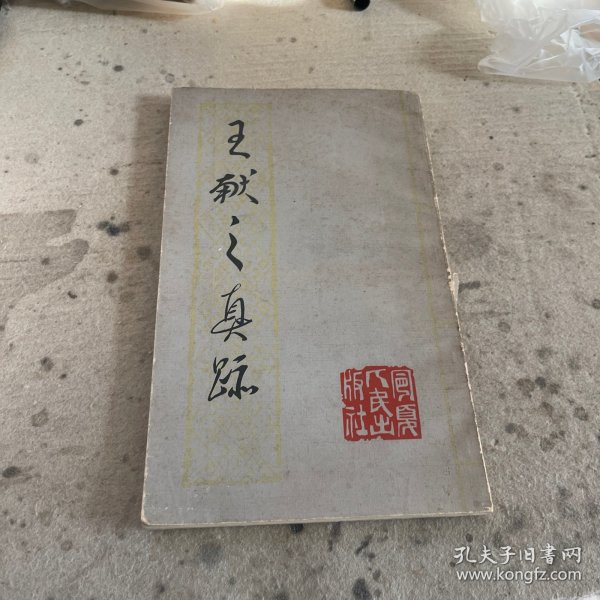 王献之真跡
宁夏
人民出
版社
孔夫子旧書网
www.kongfz.com